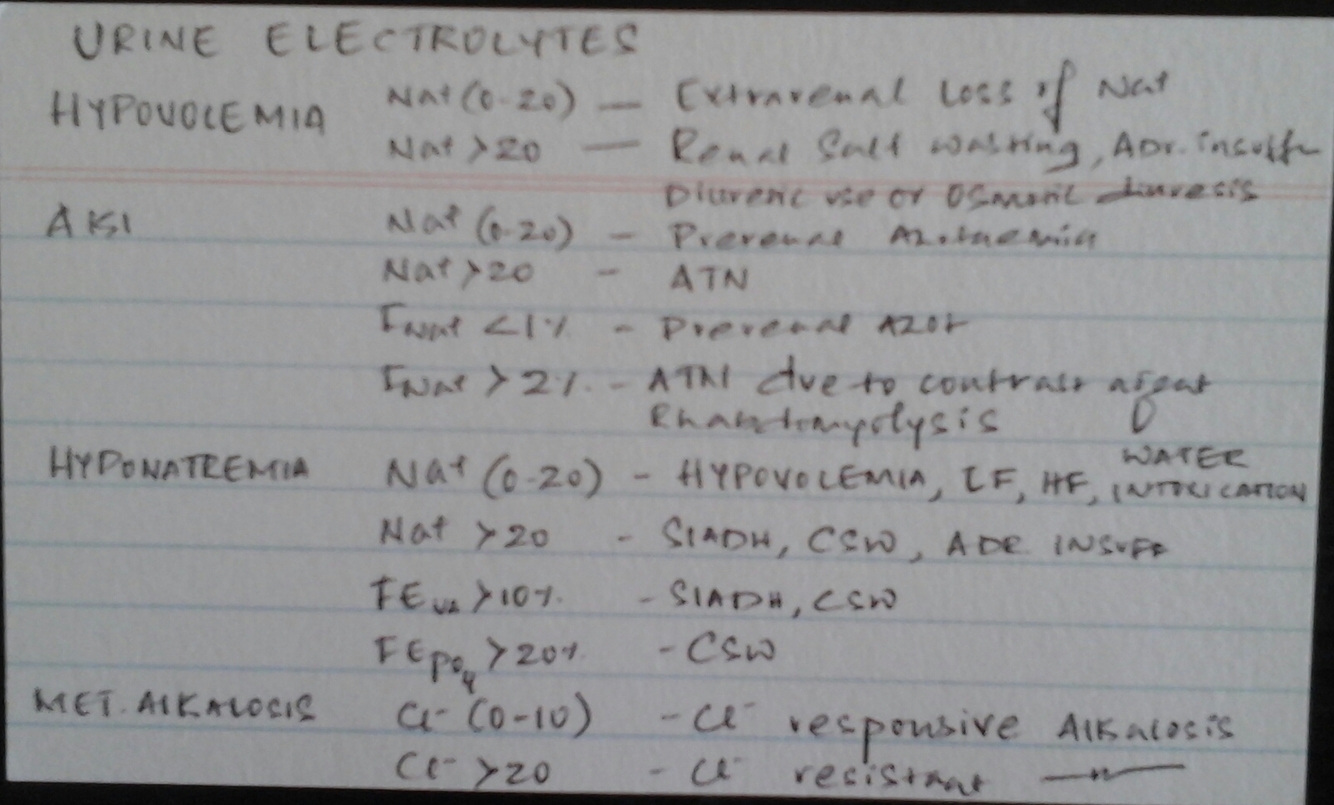 URINE ELECTROLYTES
HYPOVOLEMIA Na+ (0-20) — Extrarenal Loss of Na+
Na+ >20 — Renal Salt wasting, ADr. insuffn
Diuretic use or Osmotic diuresis
AKI Na+ (0-20) - Prerenal Azotaemia
Na+ >20 - ATN
FNa+ <1% - Prerenal AZOt
FNa+ >2% - ATN due to contrast agent
Rhabdomyolysis
HYPONATREMIA Na+ (0-20) - HYPOVOLEMIA, LF, HF, WATER INTOXICATION
Na+ >20 - SIADH, CSW, ADR INSUFF
FE UA >10% - SIADH, CSW
FE PO4 >20% - CSW
MET. ALKALOSIS Cl- (0-10) - Cl- responsive Alkalosis
Cl- >20 - Cl- resistant —〃—